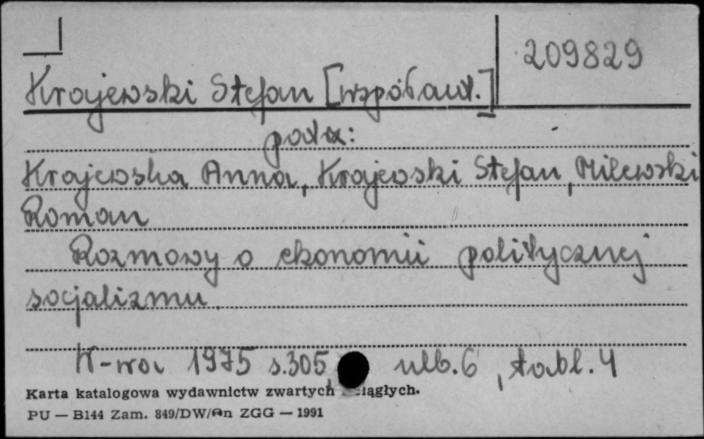 209829
Krajewski Stefan [współaut.]
patrz:
Krajewska Anna, Krajewski Stefan, Milewski
Roman
Rozmowy o ekonomii politycznej
socjalizmu
W-wa 1975 s.305, ulb.6, tabl.4
Karta katalogowa wydawnictw zwartych ciągłych.
PU — B144 Zam. 849/DW/ ZGG — 1991